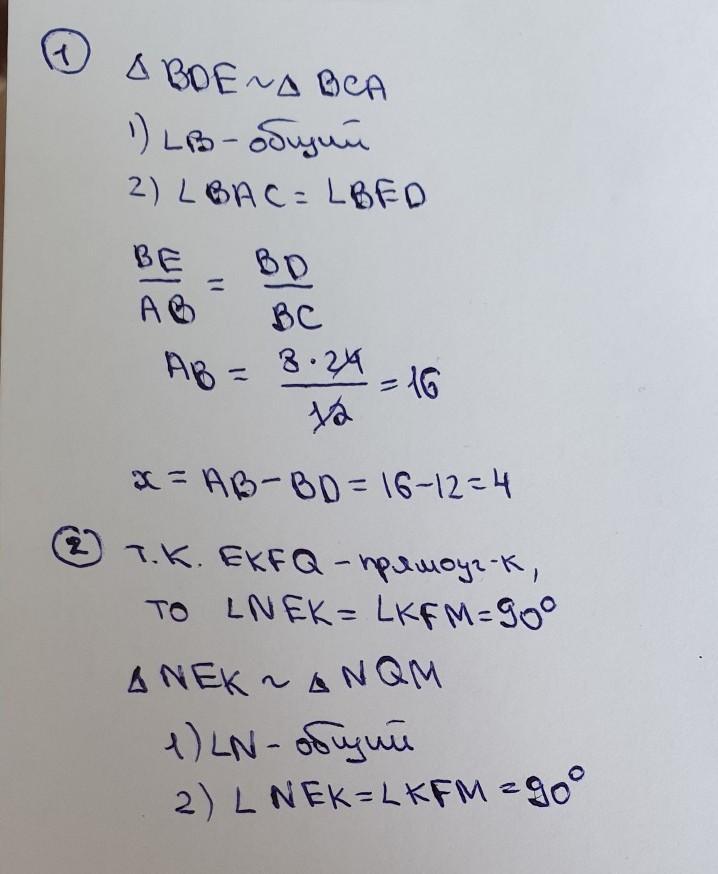 1
Δ BDE ~ Δ BCA
1) ∠B - общий
2) ∠BAC = ∠BED
BE/AB = BD/BC
AB = 8·24/12 = 16
x = AB - BD = 16-12=4
2 т.к. EKFQ - прямоуг-к,
то ∠NEK = ∠KFM = 90°
Δ NEK ~ Δ NQM
1) ∠N - общий
2) ∠ NEK = ∠KFM = 90°